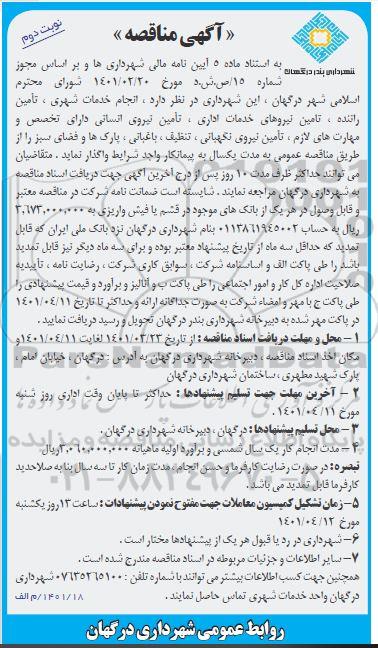 نوبت دوم
« آگهی مناقصه »
شهرداری بندر درگهان
به استناد ماده ۵ آیین نامه مالی شهرداری ها و بر اساس مجوز
شماره ۱۵/ص.ش.د مورخ ۱۴۰۱/۰۲/۲۰ شورای محترم
اسلامی شهر درگهان ، این شهرداری در نظر دارد ، انجام خدمات شهری ، تأمین
راننده ، تامین نیروهای خدمات اداری ، تأمین نیروی انسانی دارای تخصص و
مهارت های لازم ، تأمین نیروی نگهبانی ، تنظیف ، باغبانی ، پارک ها و فضای سبز را از
طریق مناقصه عمومی به مدت یکسال به پیمانکار واجد شرایط واگذار نماید . متقاضیان
می توانند حداکثر ظرف مدت ۱۰ روز پس از درج آخرین آگهی جهت دریافت اسناد مناقصه
به شهرداری درگهان مراجعه نمایند . شایسته است ضمانت نامه شرکت در مناقصه معتبر
و قابل وصول در هر یک از بانک های موجود در قشم یا فیش واریزی به ۳,۶۷۳,۰۰۰,۰۰۰
ریال به حساب ۰۱۱۳۸۶۱۹۴۵۰۰۲ بنام شهرداری درگهان نزد بانک ملی ایران که قابل
تمدید که حداقل سه ماه از تاریخ پیشنهاد معتبر بوده و برای سه ماه دیگر نیز قابل تمدید
باشد را طی پاکت الف و اساسنامه شرکت ، سوابق کاری شرکت ، رضایت نامه ، تأییدیه
صلاحیت اداره کل کار و امور اجتماعی را طی پاکت ب و آنالیز و برآورد و قیمت پیشنهادی را
طی پاکت ج با مهر و امضاء شرکت به صورت جداگانه ارائه و حداکثر تا تاریخ ۱۴۰۱/۰۴/۱۱
در پاکت مهر شده به دبیرخانه شهرداری بندر درگهان تحویل و رسید دریافت نمایید .
۱ – محل و مهلت دریافت اسناد مناقصه : از تاریخ ۱۴۰۱/۰۳/۲۳ لغایت ۱۴۰۱/۰۴/۱۱ و
مکان اخذ اسناد مناقصه ، دبیرخانه شهرداری درگهان به آدرس : درگهان ، خیابان امام ،
پارک شهید مطهری ، ساختمان شهرداری درگهان
۲ – آخرین مهلت جهت تسلیم پیشنهادها : حداکثر تا پایان وقت اداری روز شنبه
مورخ ۱۴۰۱/۰۴/۱۱ .
۳ – محل تسلیم پیشنهادها : درگهان ، دبیرخانه شهرداری درگهان .
۴ – مدت انجام کار یک سال شمسی و برآورد اولیه ماهیانه ۳,۰۶۰,۰۰۰,۰۰۰ ریال
تبصره : در صورت رضایت کارفرما و حسن انجام ، مدت زمان کار تا سه سال بنا به صلاحدید
کارفرما قابل تمدید می باشد .
۵ – زمان تشکیل کمیسیون معاملات جهت مفتوح نمودن پیشنهادات : ساعت ۱۳ روز یکشنبه
مورخ ۱۴۰۱/۰۴/۱۲
۶ – شهرداری در رد یا قبول هر یک از پیشنهادها مختار است .
۷ – سایر اطلاعات و جزئیات مربوطه در اسناد مناقصه مندرج شده است .
همچنین جهت کسب اطلاعات بیشتر می توانند با شماره تلفن : ۰۷۶۳۵۲۶۵۱۰۰ شهرداری
درگهان واحد خدمات شهری تماس حاصل نمایند . ۱۴۰۱/۱۸/م الف
روابط عمومی شهرداری درگهان